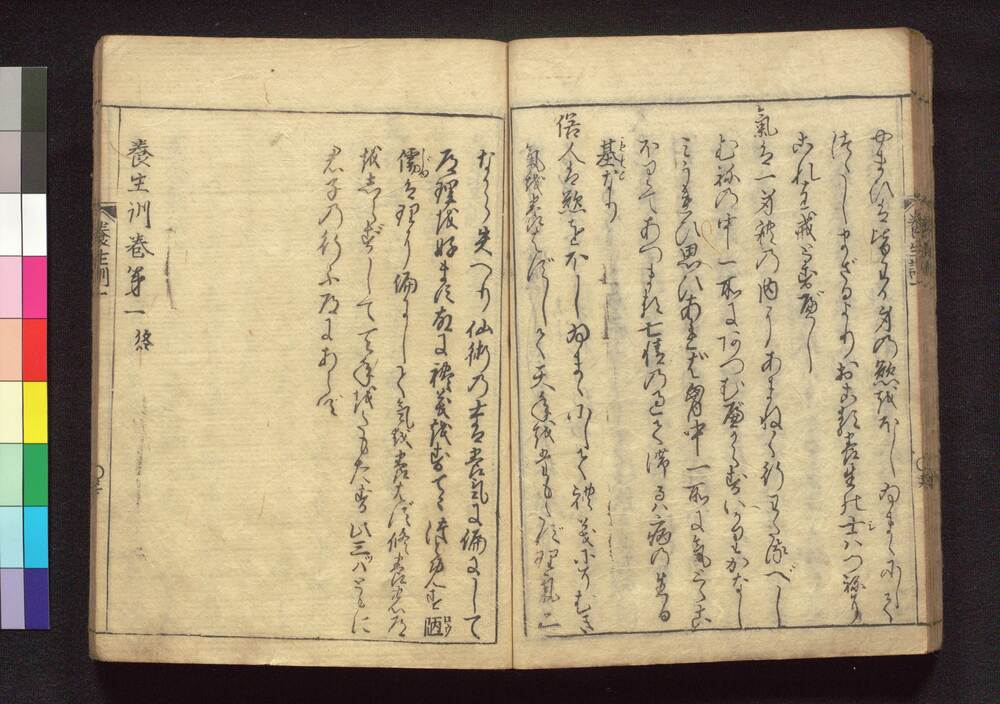 やまひは皆わが身の慾をほしゐまゝにして
つゝしまざるよりおこる養生の士はつねに
これを戒とすべし
氣は一身體の内にあまねく行わたるべし
むねの中一所にあつむべからずいかりかなし
みうれひ思ひあれば胸中一所に氣とゞこ
ほりてあつまる七情の過て滞るは病の生る
基なり
俗人は慾をほしゐまゝにして禮義にそむき
氣を養はずして天年をたもたず理氣二
ながら失へり仙術の士は養氣に偏にして
道理を好まず故に禮義をすてゝつとめず陋
儒は理に偏にして氣を養はず修養の道
をしらずして天年をたもたず此三ツはともに
君子の行ふ道にあらず
養生訓巻第一 終